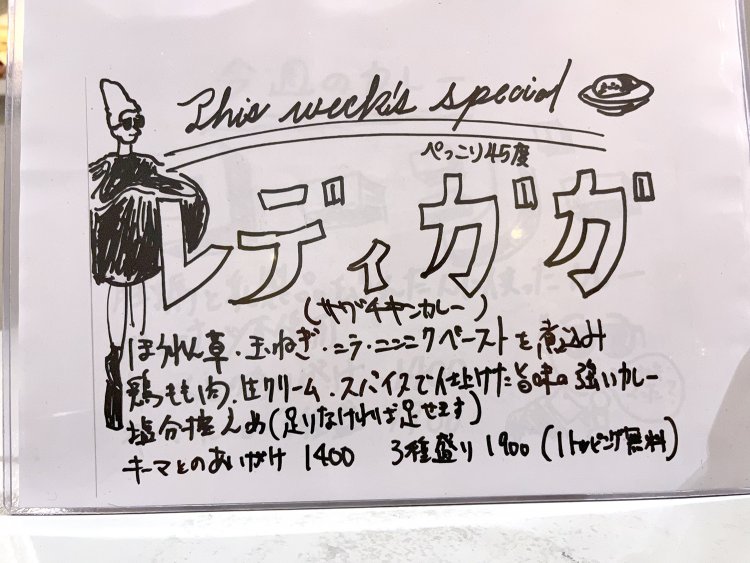 This week's special
ぺっこり45度
レディガガ
(サグチキンカレー)
ほうれん草・玉ねぎ・ニラ・ニンニクペーストを煮込み
鶏もも肉、生クリーム、スパイスで仕上げた旨味の強いカレー
塩分控えめ(足りなければ足せます)
キーマとのあいがけ 1400 3種盛り 1900 (1トッピング無料)